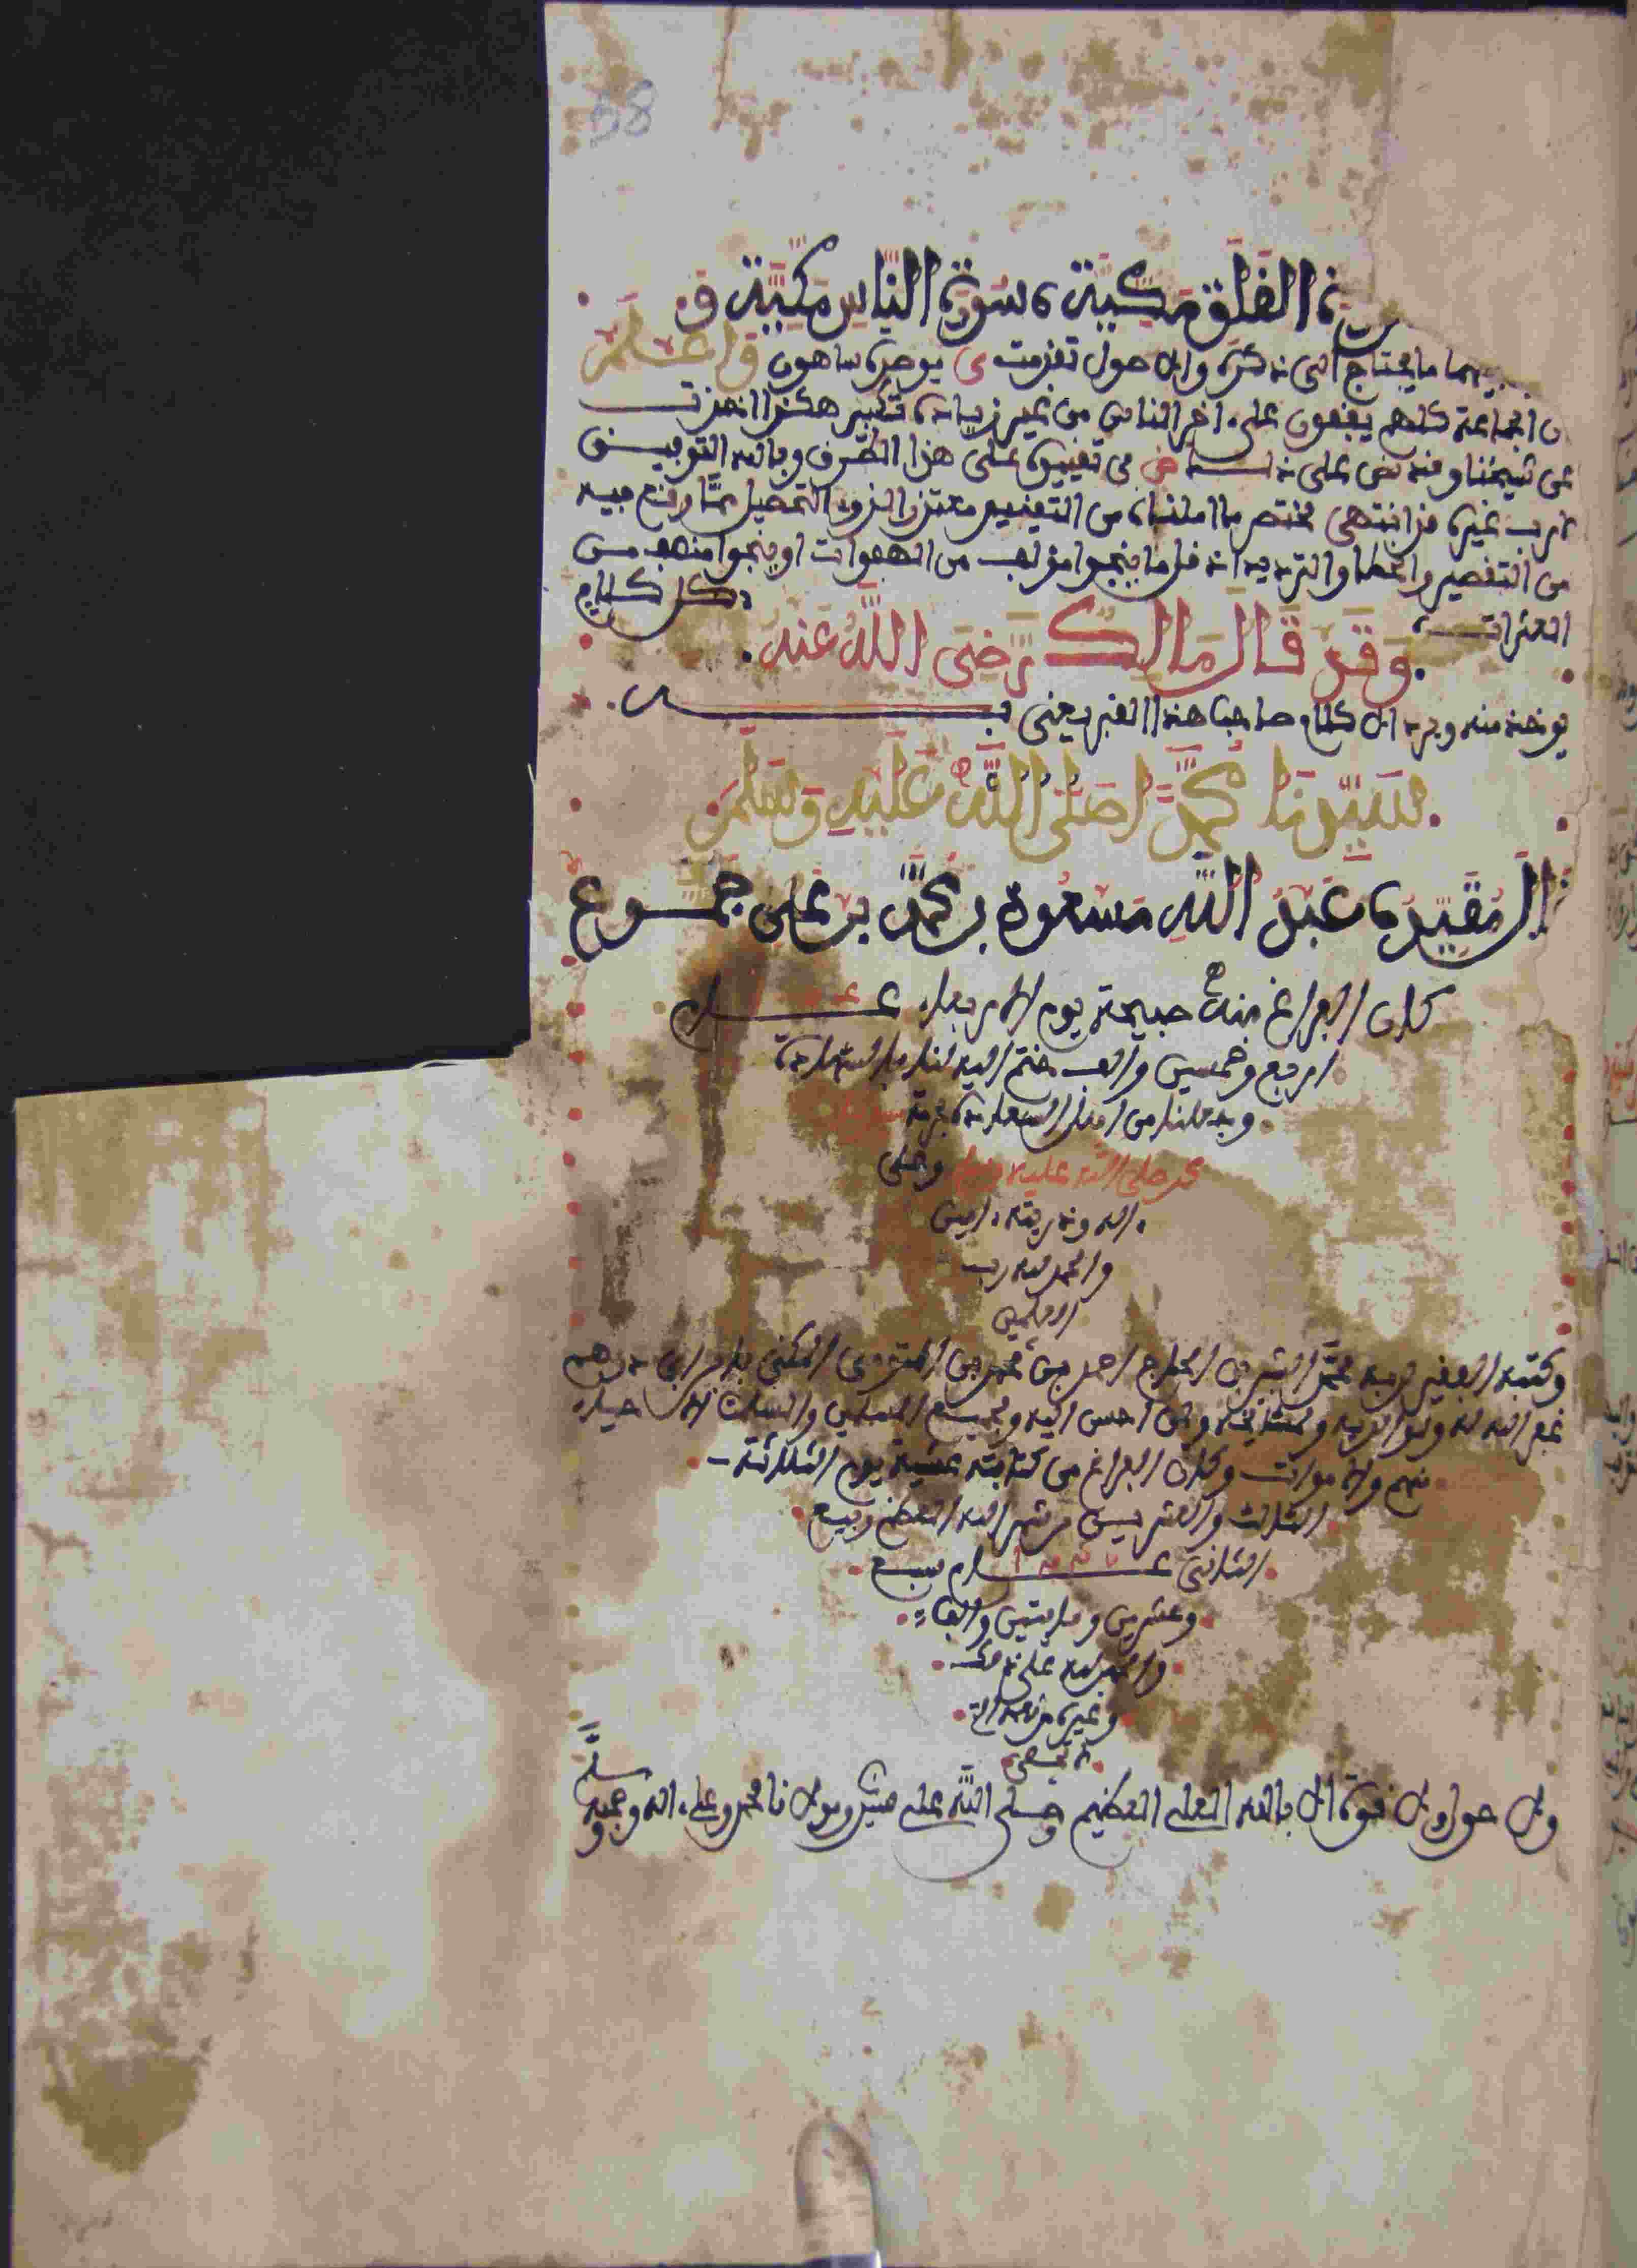 58
سورة الفلق مكية، سورة الناس مكية و
فيهما ما يحتاج الى ذكره والاصول تقدمت يوحده ساهون واعلم
ان الجماعة كلهم يقفون على ءاخر الناس من غير زيادة تكبير هكذا اخذت
عن شيخنا وقد نص على ذلك في تقييده على هذا الطرف وبالله التوفيق
لا رب غيره فد انتهى مختصر ما املناه من التقييد معتذرا لذوي التحصيل مما وقع فيه
من التقصير والخطا والترديد اذ قل ما ينجوا مؤلف من الهفوات او ينجوا مصنف من
العثرات،
وقد قال مالك رضي الله عنه
كل كلام
يوخذ منه ويرد الا كلام صاحب هذا القبر يعني ب
سيدنا محمدا صلى الله عليه وسلم
قال مقيده عبد الله مسعود بن محمد بن على جموع
كان الفراغ منه صبيحة يوم الاربعاء عام
اربع وخمسين والف ختم الله لنا بالشهادة
وجعلنا من اهل السعادة بحرمة
محمد صلى الله عليه وسلم وعلى
ءاله وذريته ءامين
والحمد لله رب
العلمين
وكتبه الفقير لربه محمد البشر بن الحاج احمد بن محمد بن المكنى بابن ابي
غفر الله له ولوالديه ولمشايخه ولمن احسن اليه ولجميع المسلمين والمسلمات الاحياء
منهم والاموات وكان الفراغ من كتابته عشية يوم الثلاثة
الثالث والعشرين من شهر الله المعظم ربيع
الثاني عام سبع
وعشرين ومايتين والف
والحمد لله على ذلك
وغيره من نعمه التي
لا تحصى
ولا حول ولا قوة الا بالله العلي العظيم وصلى الله على سيدنا ومولانا محمد وعلى ءاله وصحبه وسلم